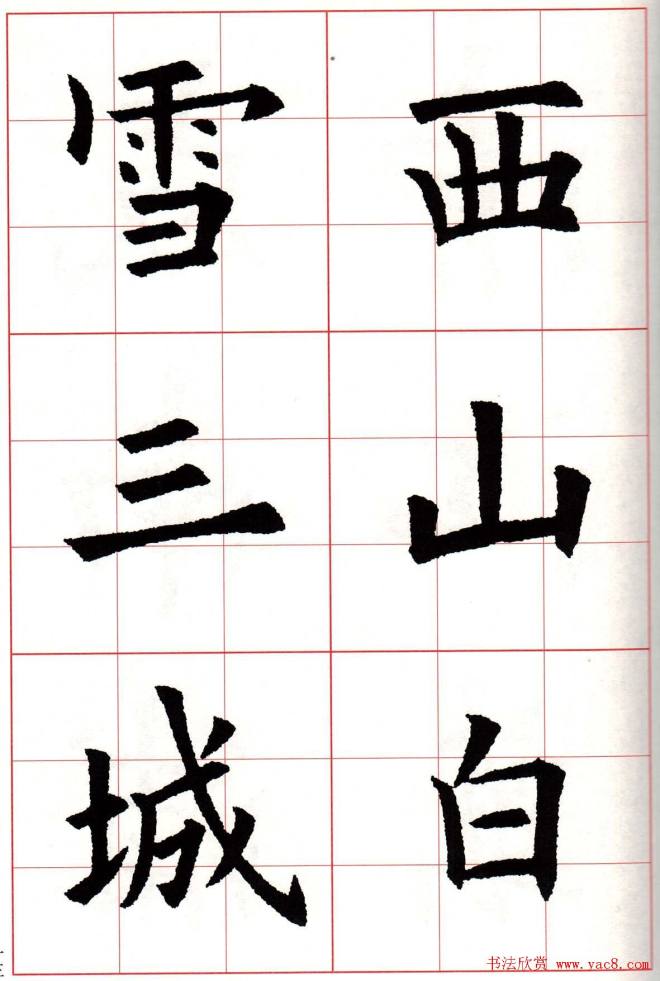 西山白
雪三城
十三
书法欣赏 www.yac8.com